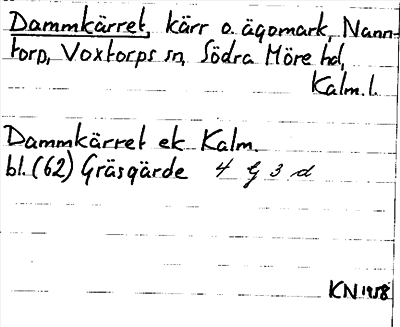 Dammkärret, kärr o. ägomark, Nann-
torp, Voxtorps sn, Södra Möre hd,
Kalm. l.
Dammkärret ek Kalm.
bl. (62) Gräsgärde 4 G 3 d
KN 1958